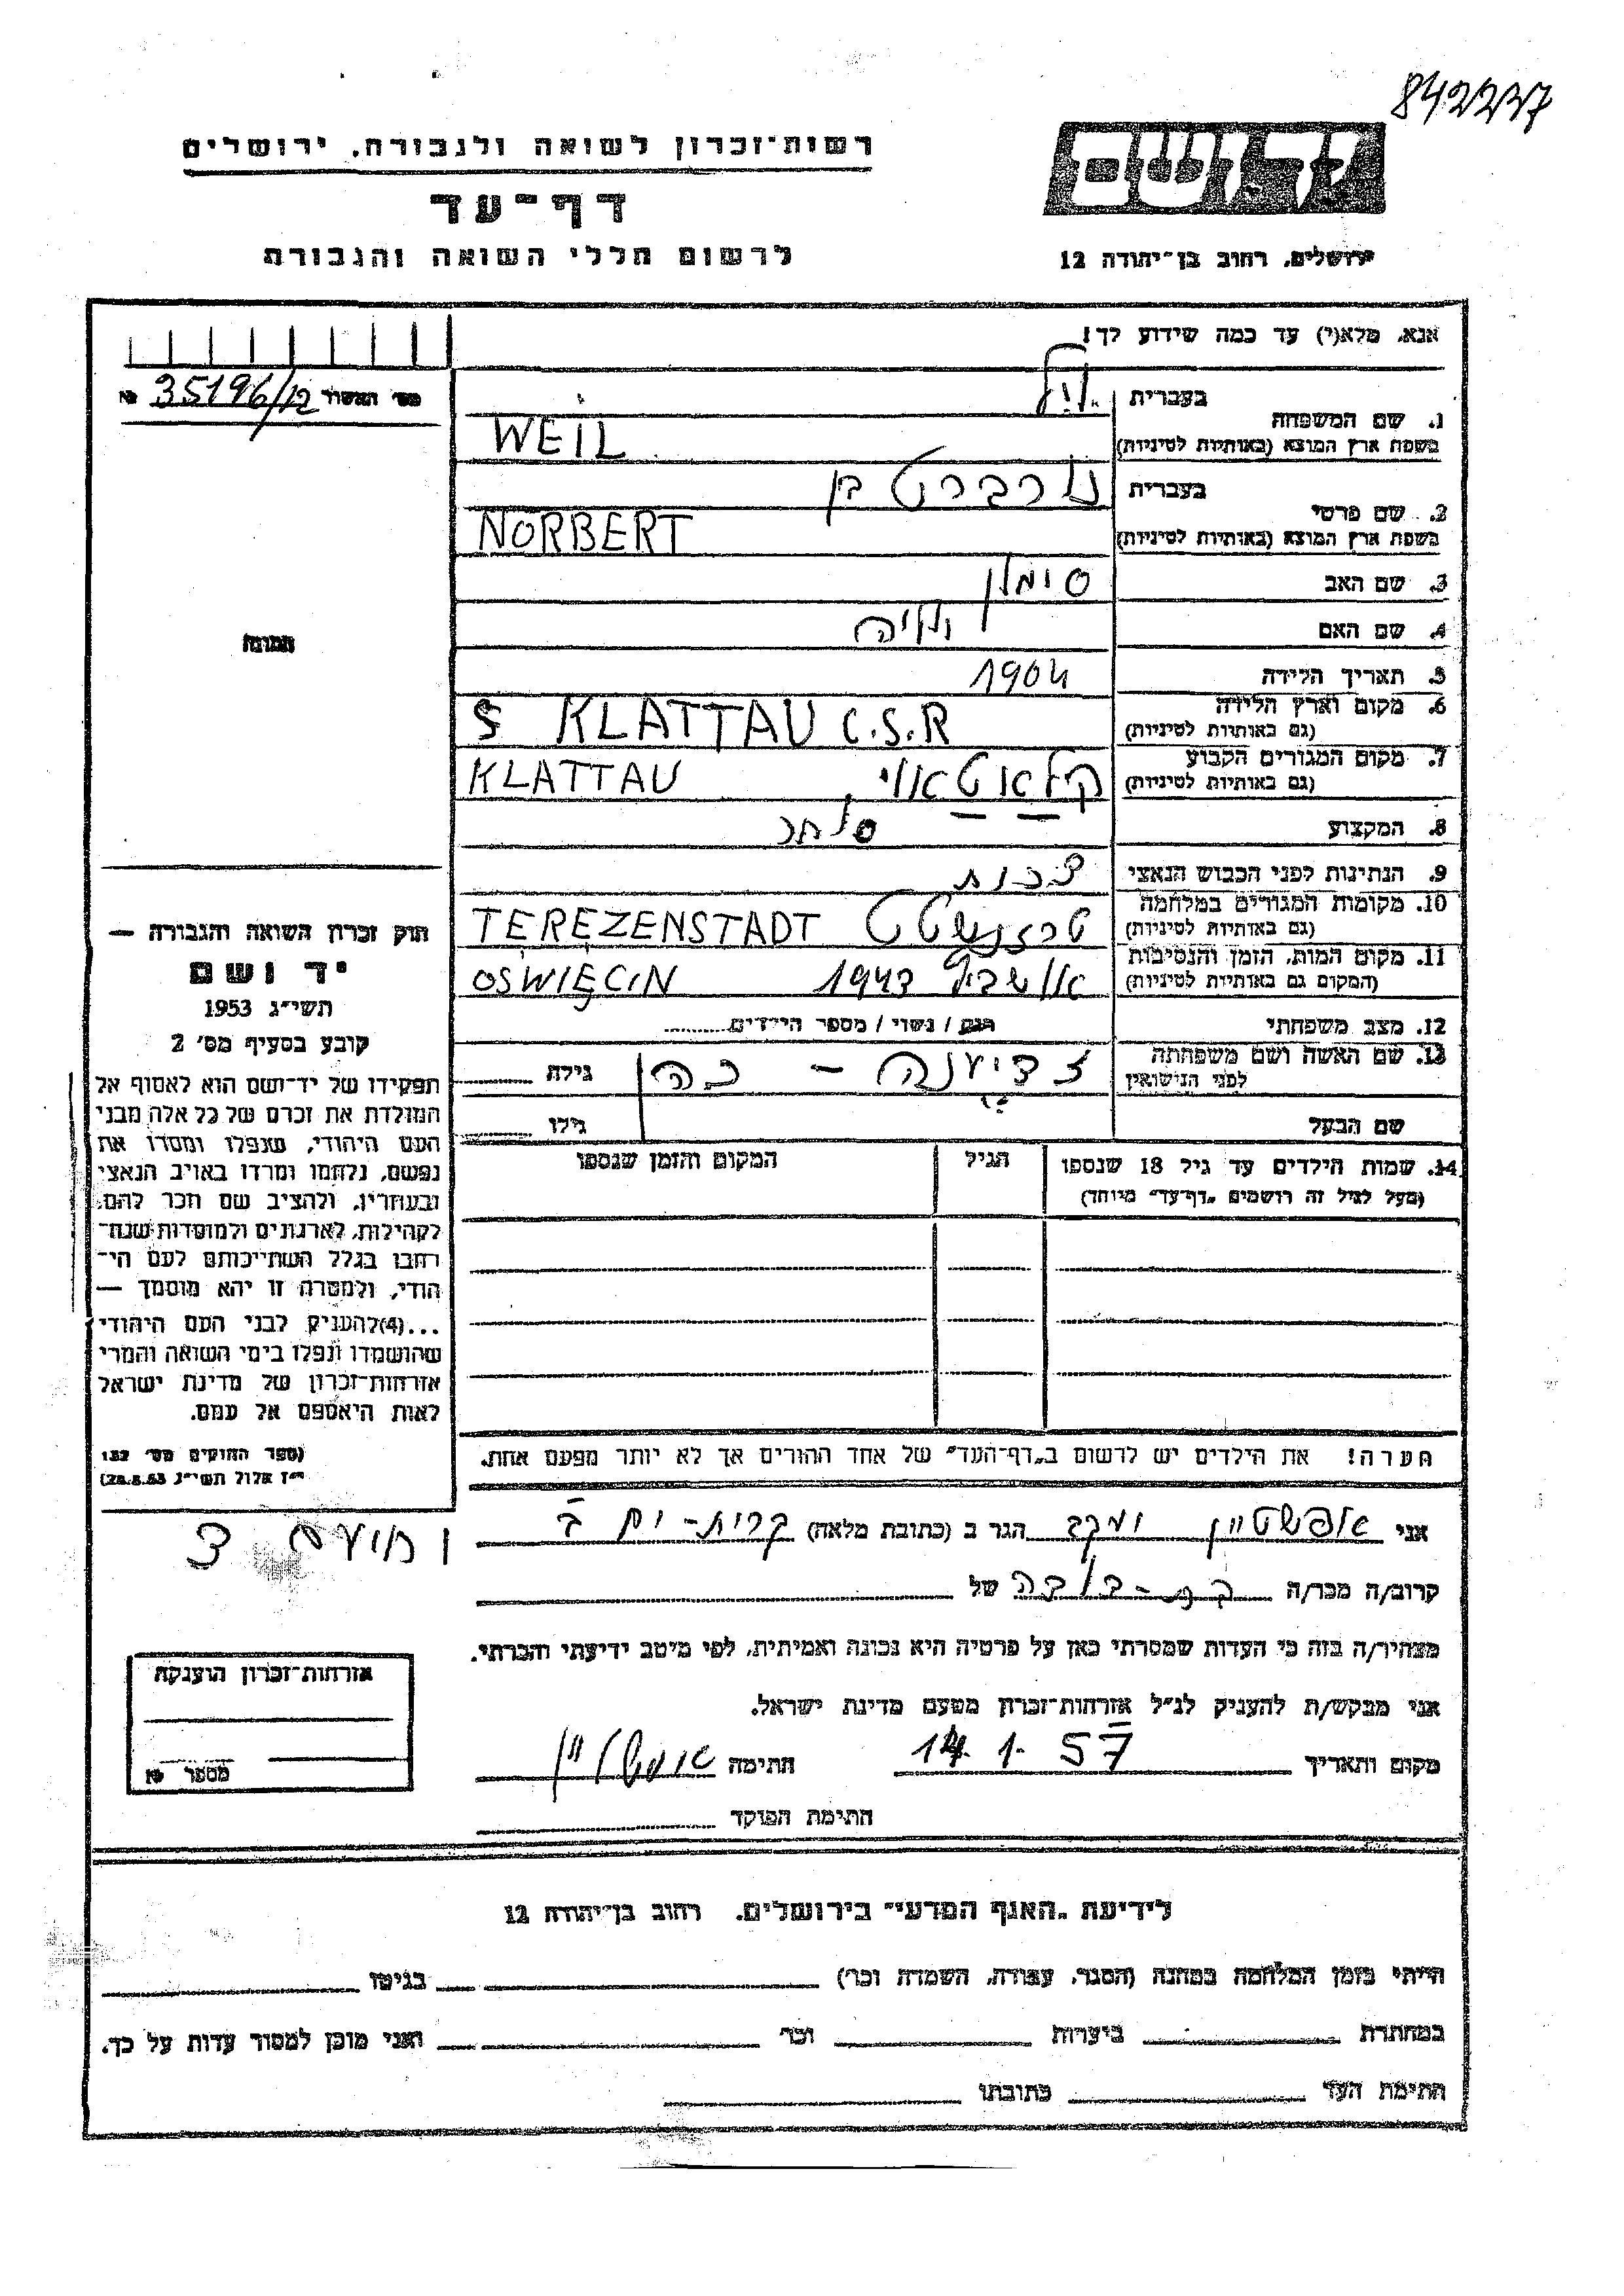 842237
רשות־זכרון לשואה ולגבורה, ירושלים
דף־עד
לרשום חללי השואה והגבורה
ירושלים, רחוב בן־יהודה 12
אנא, מלא(י) עד כמה שידוע לך!
מס' האשור 35196/12 №
1. שם המשפחה
בעברית
בשפת ארץ המוצא (באותיות לטיניות) WEIL
2. שם פרטי
בעברית נורברט בן
בשפת ארץ המוצא (באותיות לטיניות) NORBERT
3. שם האב סימון
4. שם האם
5. תאריך הלידה 1904
6. מקום וארץ הלידה
(גם באותיות לטיניות) KLATTAU C.S.R
7. מקום המגורים הקבוע
(גם באותיות לטיניות) KLATTAU
8. המקצוע סוחר
9. הנתינות לפני הכבוש הנאצי צכית
10. מקומות המגורים במלחמה
(גם באותיות לטיניות) TEREZENSTADT
11. מקום המות, הזמן והנסיבות
(המקום גם באותיות לטיניות) 1943 OSWIĘCIN
12. מצב משפחתי רווק / נשוי / מספר הילדים
13. שם האשה ושם משפחתה
לפני הנישואין גילה
שם הבעל גילו
14. שמות הילדים עד גיל 18 שנספו הגיל המקום והזמן שנספו
(מעל לגיל זה רושמים „דף־עד" מיוחד)
הערה! את הילדים יש לרשום ב„דף־העד" של אחד ההורים אך לא יותר מפעם אחת.
תמונה
חוק זכרון השואה והגבורה —
יד ושם
תשי״ג 1953
קובע בסעיף מס' 2
תפקידו של יד־ושם הוא לאסוף אל
המולדת את זכרם של כל אלה מבני
העם היהודי, שנפלו ומסרו את
נפשם, נלחמו ומרדו באויב הנאצי
ובעוזריו, ולהציב שם וזכר להם,
לקהילות, לארגונים ולמוסדות שנח־
רבו בגלל השתייכותם לעם הי־
הודי, ולמטרה זו יהא מוסמך —
...(4) להעניק לבני העם היהודי
שהושמדו ונפלו בימי השואה והמרי
אזרחות־זכרון של מדינת ישראל
לאות היאספם אל עמם.
(ספר החוקים מס' 132
י״ז אלול תשי״ג 28.8.53)
אני אפשטיין יעקב הגר ב (כתובת מלאה) קרית-ים ב
קרוב/ה מכר/ה של
מצהיר/ה בזה כי העדות שמסרתי כאן על פרטיה היא נכונה ואמיתית, לפי מיטב ידיעתי והכרתי.
אני מבקש/ת להעניק לנ״ל אזרחות־זכרון מטעם מדינת ישראל.
מקום ותאריך 14. 1. 57 חתימה אפשטיין
חתימת הפוקד
אזרחות־זכרון הוענקה
מספר №
לידיעת „האגף המדעי" בירושלים, רחוב בן־יהודה 12
הייתי בזמן המלחמה במחנה (הסגר, עבודה, השמדה וכו') בגיטו
במחתרת ביערות וכו' ואני מוכן למסור עדות על כך.
חתימת העד כתובתו